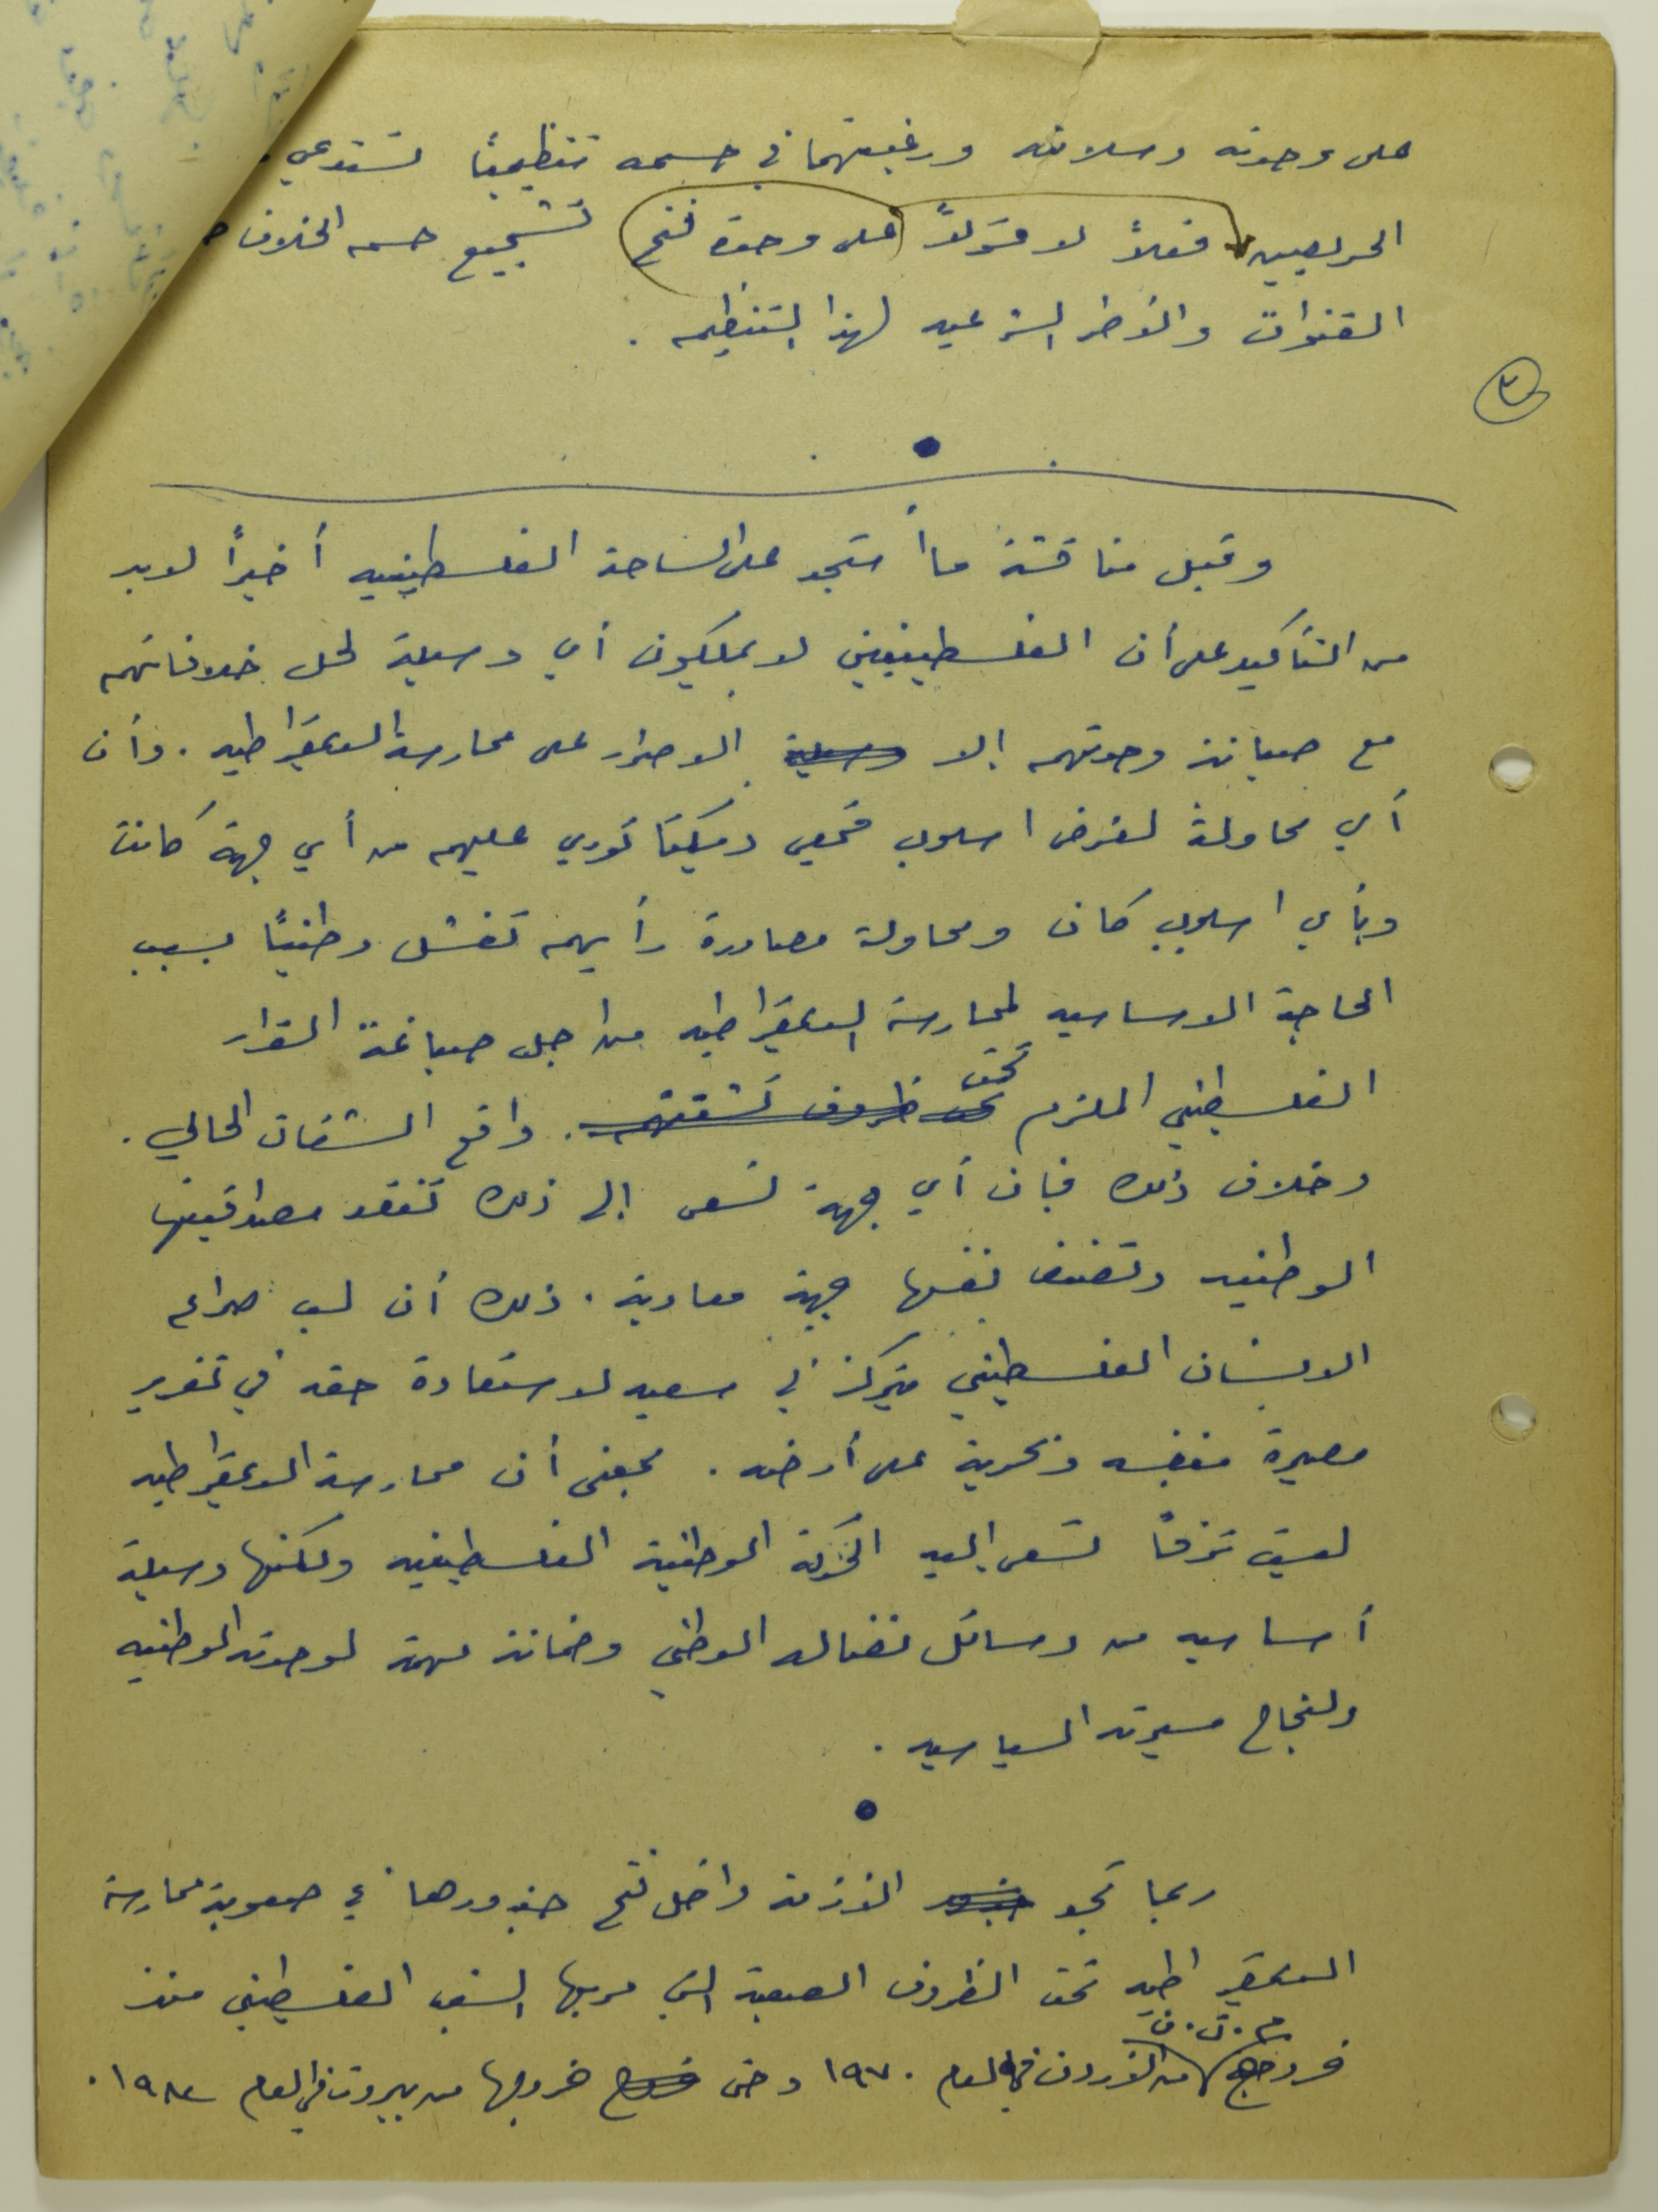 على وحدته وسلامته ورغبتهما في حسمه تنظيميًا تستدعي
الحريصين فعلاً لا قولاً على وحدة فتح تشجيع حسم الخلاف
القنوات والأطر الشرعيه لهذا التنظيم .
٣
وقبل مناقشة ما أستجد على الساحة الفلسطينيه أخيراً لابد
من التأكيد على أن الفلسطينيين لا يملكون أي وسيلة لحل خلافاتهم
مع صيانة وحدتهم إلا وسيلة الاصرار على ممارسة الديمقراطيه . وأن
أي محاولة لفرض اسلوب قمعي دكيتاتوري عليهم من أي جهة كانت
وبأي اسلوب كان ومحاولة مصادرة رأيهم تفشل وطنيًا بسبب
الحاجة الاساسيه لممارسة الديمقراطيه من اجل صياغة القرار
الفلسطيني الملزم تحت ظروف تشتتهم . تحت واقع الشتات الحالي .
وخلاف ذلك فبان أي جهة تسعى إلى ذلك تفقد مصداقيتها
الوطنيه وتصنف نفسها جهة معادية . ذلك أن لب صراع
الانسان الفلسطيني يتركز في سعيه لاستعادة حقه في تقرير
مصيرة بنفسه وبحرية على أرضه . بمعنى أن ممارسة الديمقراطيه
ليست ترفاً تسعى إليه الحركة الوطنية الفلسطينيه ولكنها وسيلة
أساسيه من وسائل نضاله الوطني وضمانة مهمة لوحدته الوطنيه
ولنجاح مسيرته السياسيه .
ربما تجد الأزمة داخل فتح جذورها في صعوبة ممارسة
الديمقراطيه تحت الظروف الصعبة التي مر بها الشعب الفلسطيني منذ
م . ت . ف
خروج من الأردن في العام ١٩٧٠ وحتى خروج خروجها من بيروت في العام ١٩٨٢ .